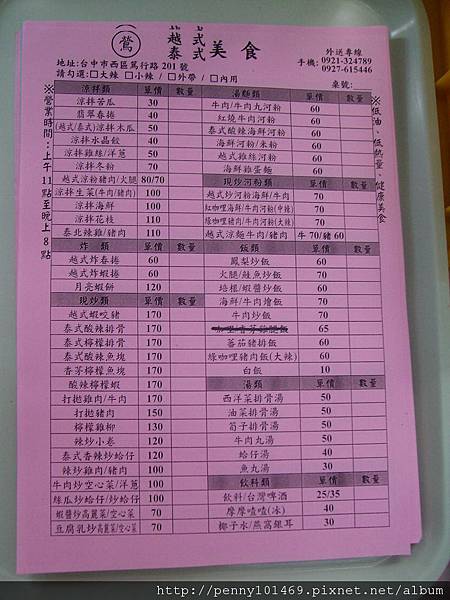 鶯
越式
泰式美食
外送專線
手機: 0921-324789
0927-615446
地址:台中市西區篤行路 201 號
請勾選:□大辣 □小辣 / □外帶 / □內用
桌號:
※營業時間:上午11點至晚上8點
※低油、低熱量、健康美食
涼拌類 單價 數量
涼拌苦瓜 30
翡翠春捲 40
(越式/泰式)涼拌木瓜 50
涼拌水晶餃 40
涼拌雞絲/洋蔥 50
涼拌冬粉 70
越式涼粉豬肉/火腿 80/70
涼拌生菜(牛肉/豬肉) 100
涼拌海鮮 100
涼拌花枝 110
泰北辣雞/豬肉 110
炸類 單價 數量
越式炸春捲 60
越式炸蝦捲 60
月亮蝦餅 120
現炒類 單價 數量
越式蝦咬豬 170
泰式酸辣排骨 170
泰式檸檬排骨 170
泰式酸辣魚塊 170
香茅檸檬魚塊 170
酸辣檸檬蝦 170
打拋雞肉/牛肉 170
打拋豬肉 150
檸檬雞柳 130
辣炒小卷 120
泰式香辣炒蛤仔 120
辣炒雞肉/豬肉 100
牛肉炒空心菜/洋蔥 100
絲瓜炒蛤仔/炒蛤仔 100
蝦醬炒高麗菜/空心菜 70
豆腐乳炒高麗菜/空心菜 70
湯麵類 單價 數量
牛肉/牛肉丸河粉 60
紅燒牛肉河粉 60
泰式酸辣海鮮河粉 60
海鮮河粉/米粉 60
越式雞絲河粉 60
海鮮雞蛋麵 60
現炒河粉類 單價 數量
越式炒河粉海鮮/牛肉 70
紅咖哩海鮮/牛肉河粉(中辣) 70
綠咖哩豬肉/牛肉河粉(大辣) 70
越式涼麵牛肉/豬肉 牛 70/豬 60
飯類 單價 數量
鳳梨炒飯 60
火腿/鮭魚炒飯 70
培根/蝦醬炒飯 60
海鮮/牛肉燴飯 70
牛肉炒飯 70
65
蕃茄豬排飯 60
綠咖哩豬肉飯(大辣) 70
白飯 10
湯類 單價 數量
西洋菜排骨湯 50
油菜排骨湯 50
筍子排骨湯 50
牛肉丸湯 50
蛤仔湯 40
魚丸湯 30
飲料類 單價 數量
飲料/台灣啤酒 25/35
摩摩喳喳(冰) 40
椰子水/燕窩銀耳 30
http://penny101469.pixnet.net/album